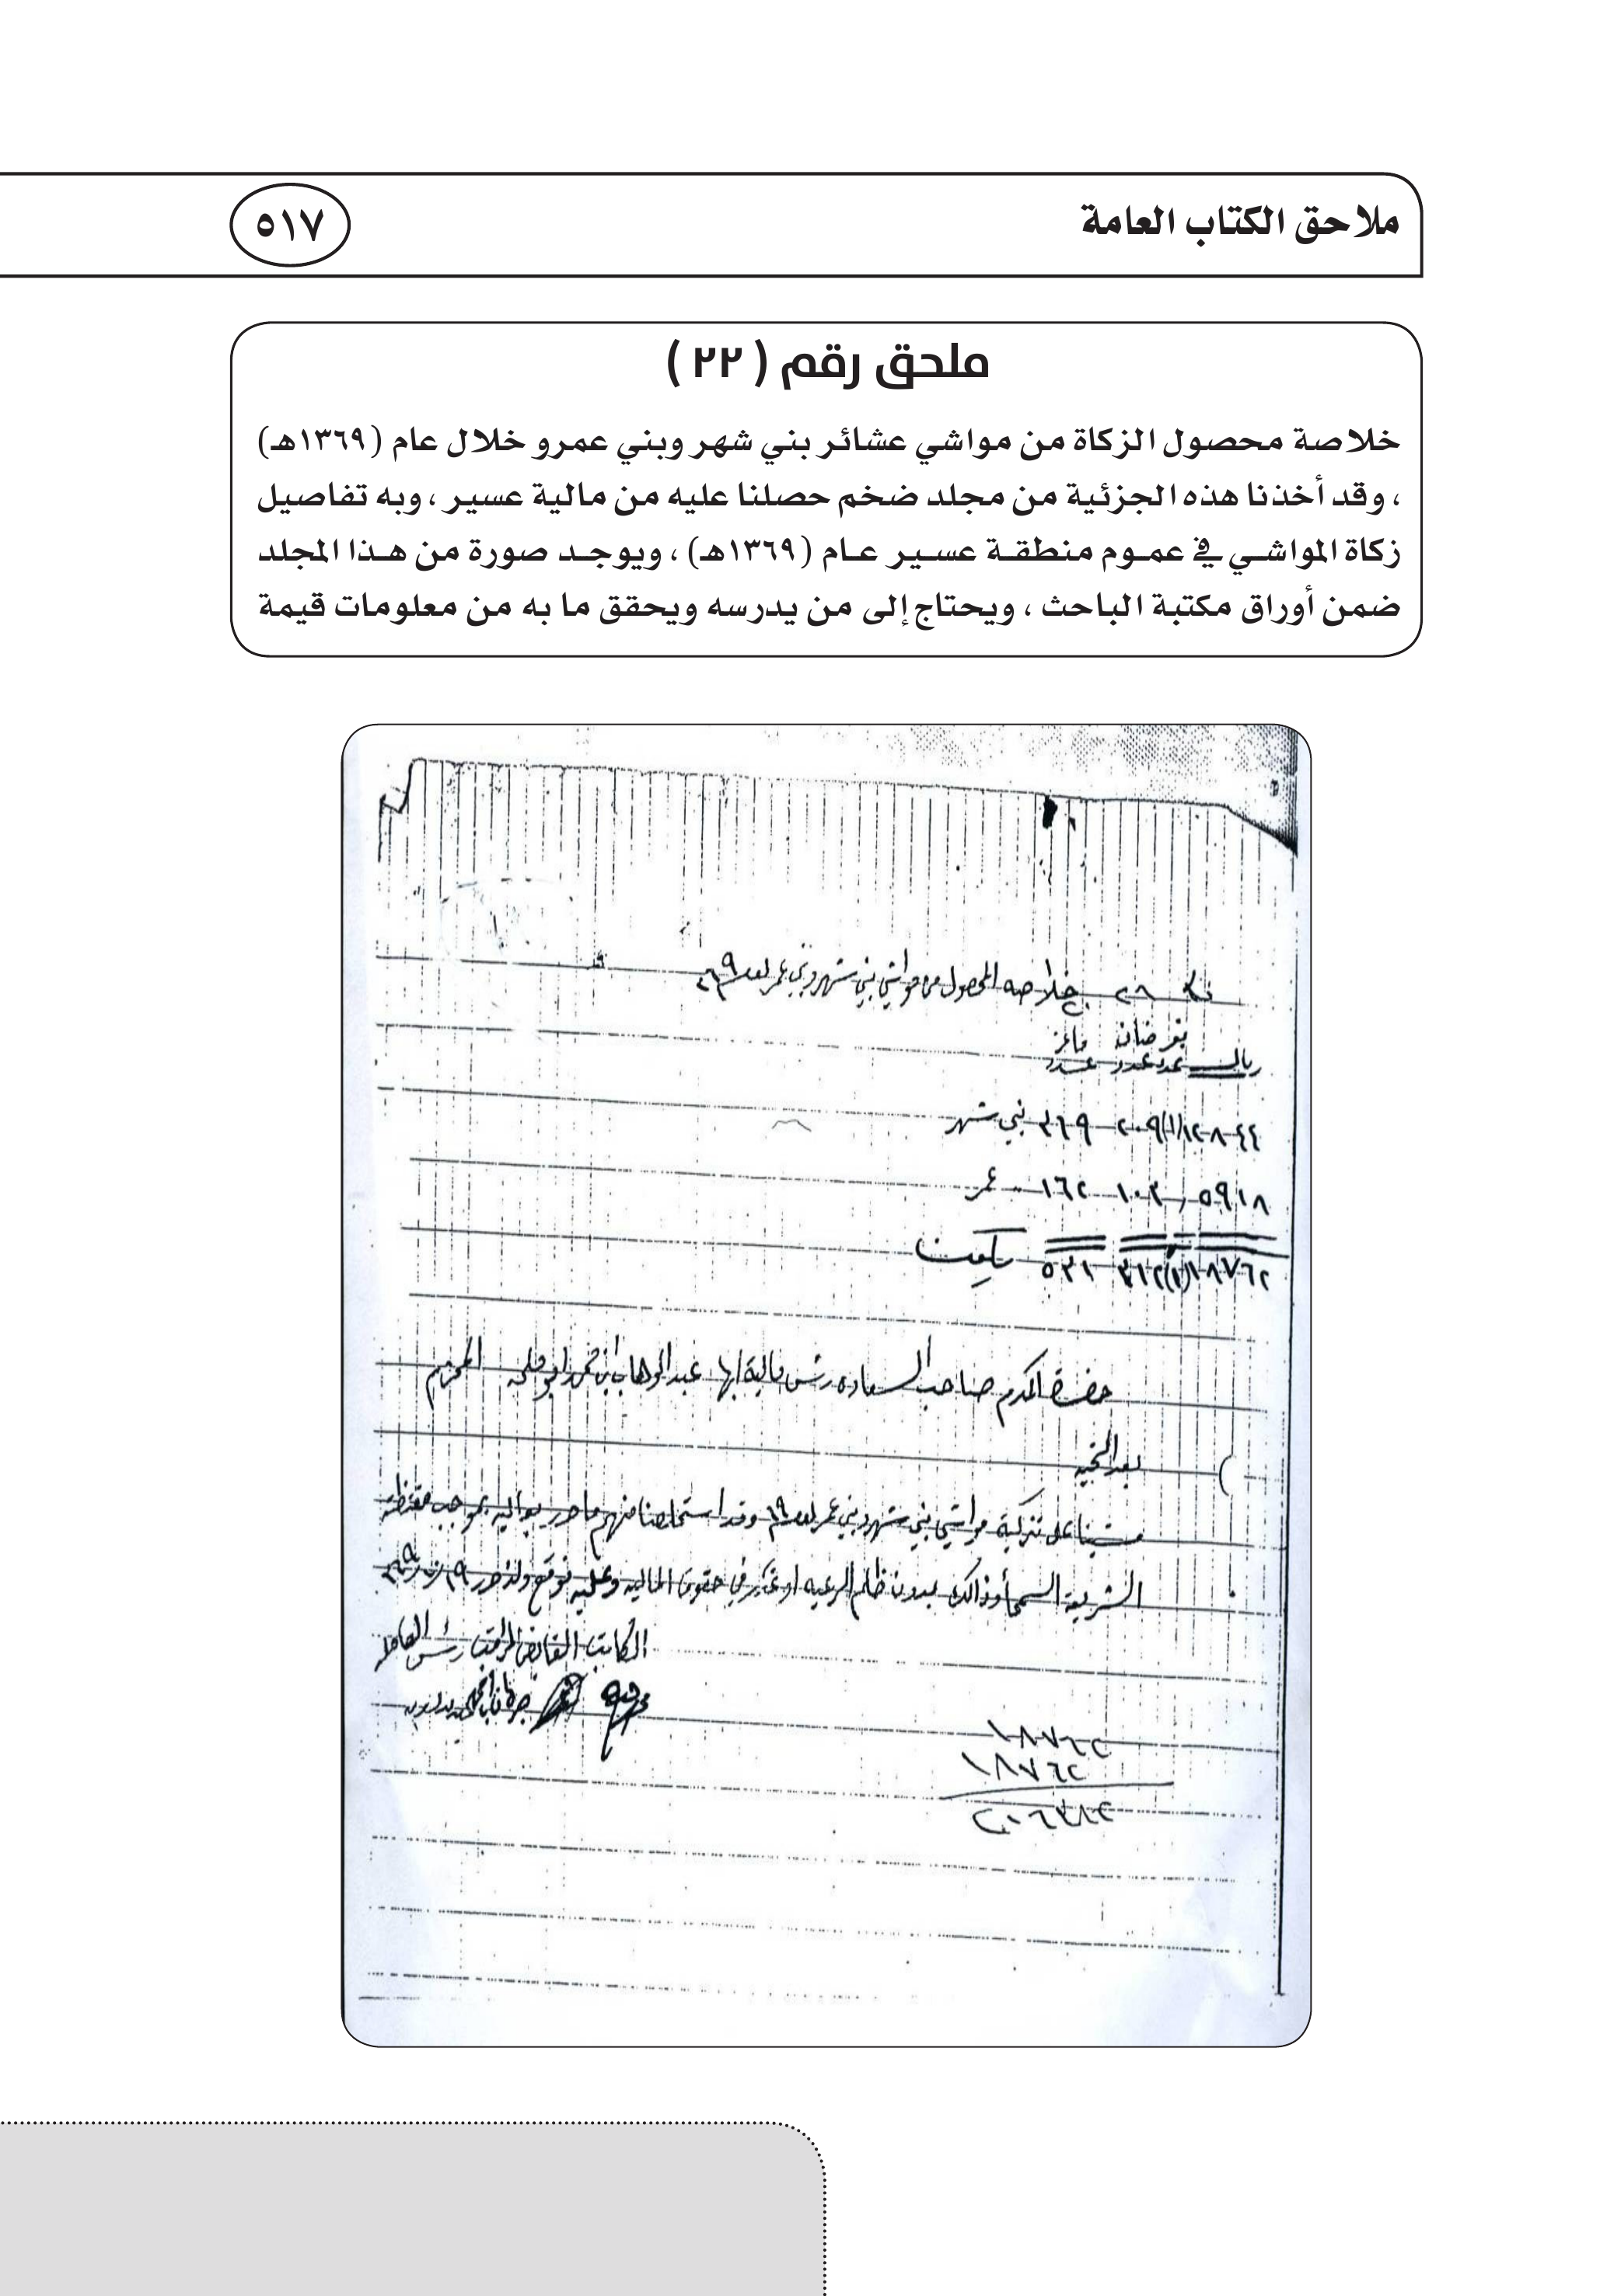 ملاحق الكتاب العامة
٥١٧
ملحق رقم ( ٢٢ )
خلاصة محصول الزكاة من مواشي عشائر بني شهر وبني عمرو خلال عام (١٣٦٩هـ)
، وقد أخذنا هذه الجزئية من مجلد ضخم حصلنا عليه من مالية عسير ، وبه تفاصيل
زكاة المواشي في عموم منطقة عسير عام (١٣٦٩هـ) ، ويوجد صورة من هذا المجلد
ضمن أوراق مكتبة الباحث ، ويحتاج إلى من يدرسه ويحقق ما به من معلومات قيمة
خلاصه المحصول من مواشي بني شهر وبني عمر
ريال عدد عدد عدد
١٢٨٤٤ ٢٠٩ ٣٦٩ بني شهر
٥٩١٨ ١٠٣ ١٦٢ عمر
١٨٧٦٢ ٣١٢ ٥٣١
حضرة المكرم صاحب السعاده رئيس مالية ابها عبدالوهاب ابن محمد ابو ملحه المحترم
بعد التحيه
مشينا على تزكية مواشي بني شهر وبني عمر وقد استحلصنا منهم ما حرر بموجب
الشريعة السمحا وذالك بدون ظلم الرعيه او في حقوق الماليه وعليه نوقع
الكاتب القابض المراقب رئيس العامله
١٨٧٦٢
١٨٧٦٢